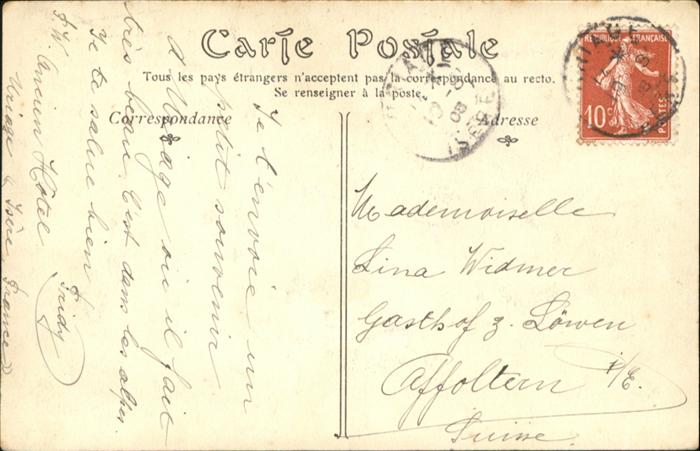 Carte Postale
Tous les pays étrangers n'acceptent pas la correspondance au recto.
Se renseigner à la poste.
Correspondance
Adresse
RÉPUBLIQUE FRANÇAISE
10c
POSTES
URIAGE
ISÈRE
08
Je t'envoie un
petit souvenir
d'Uriage où il fait
très beau. C'est dans les alpes.
Je te salue bien
Fridy
p.A. Ancien Hôtel
Uriage, Isère, France
Mademoiselle
Lina Widmer
Gasthof z. Löwen
Affoltern i/E.
Suisse.